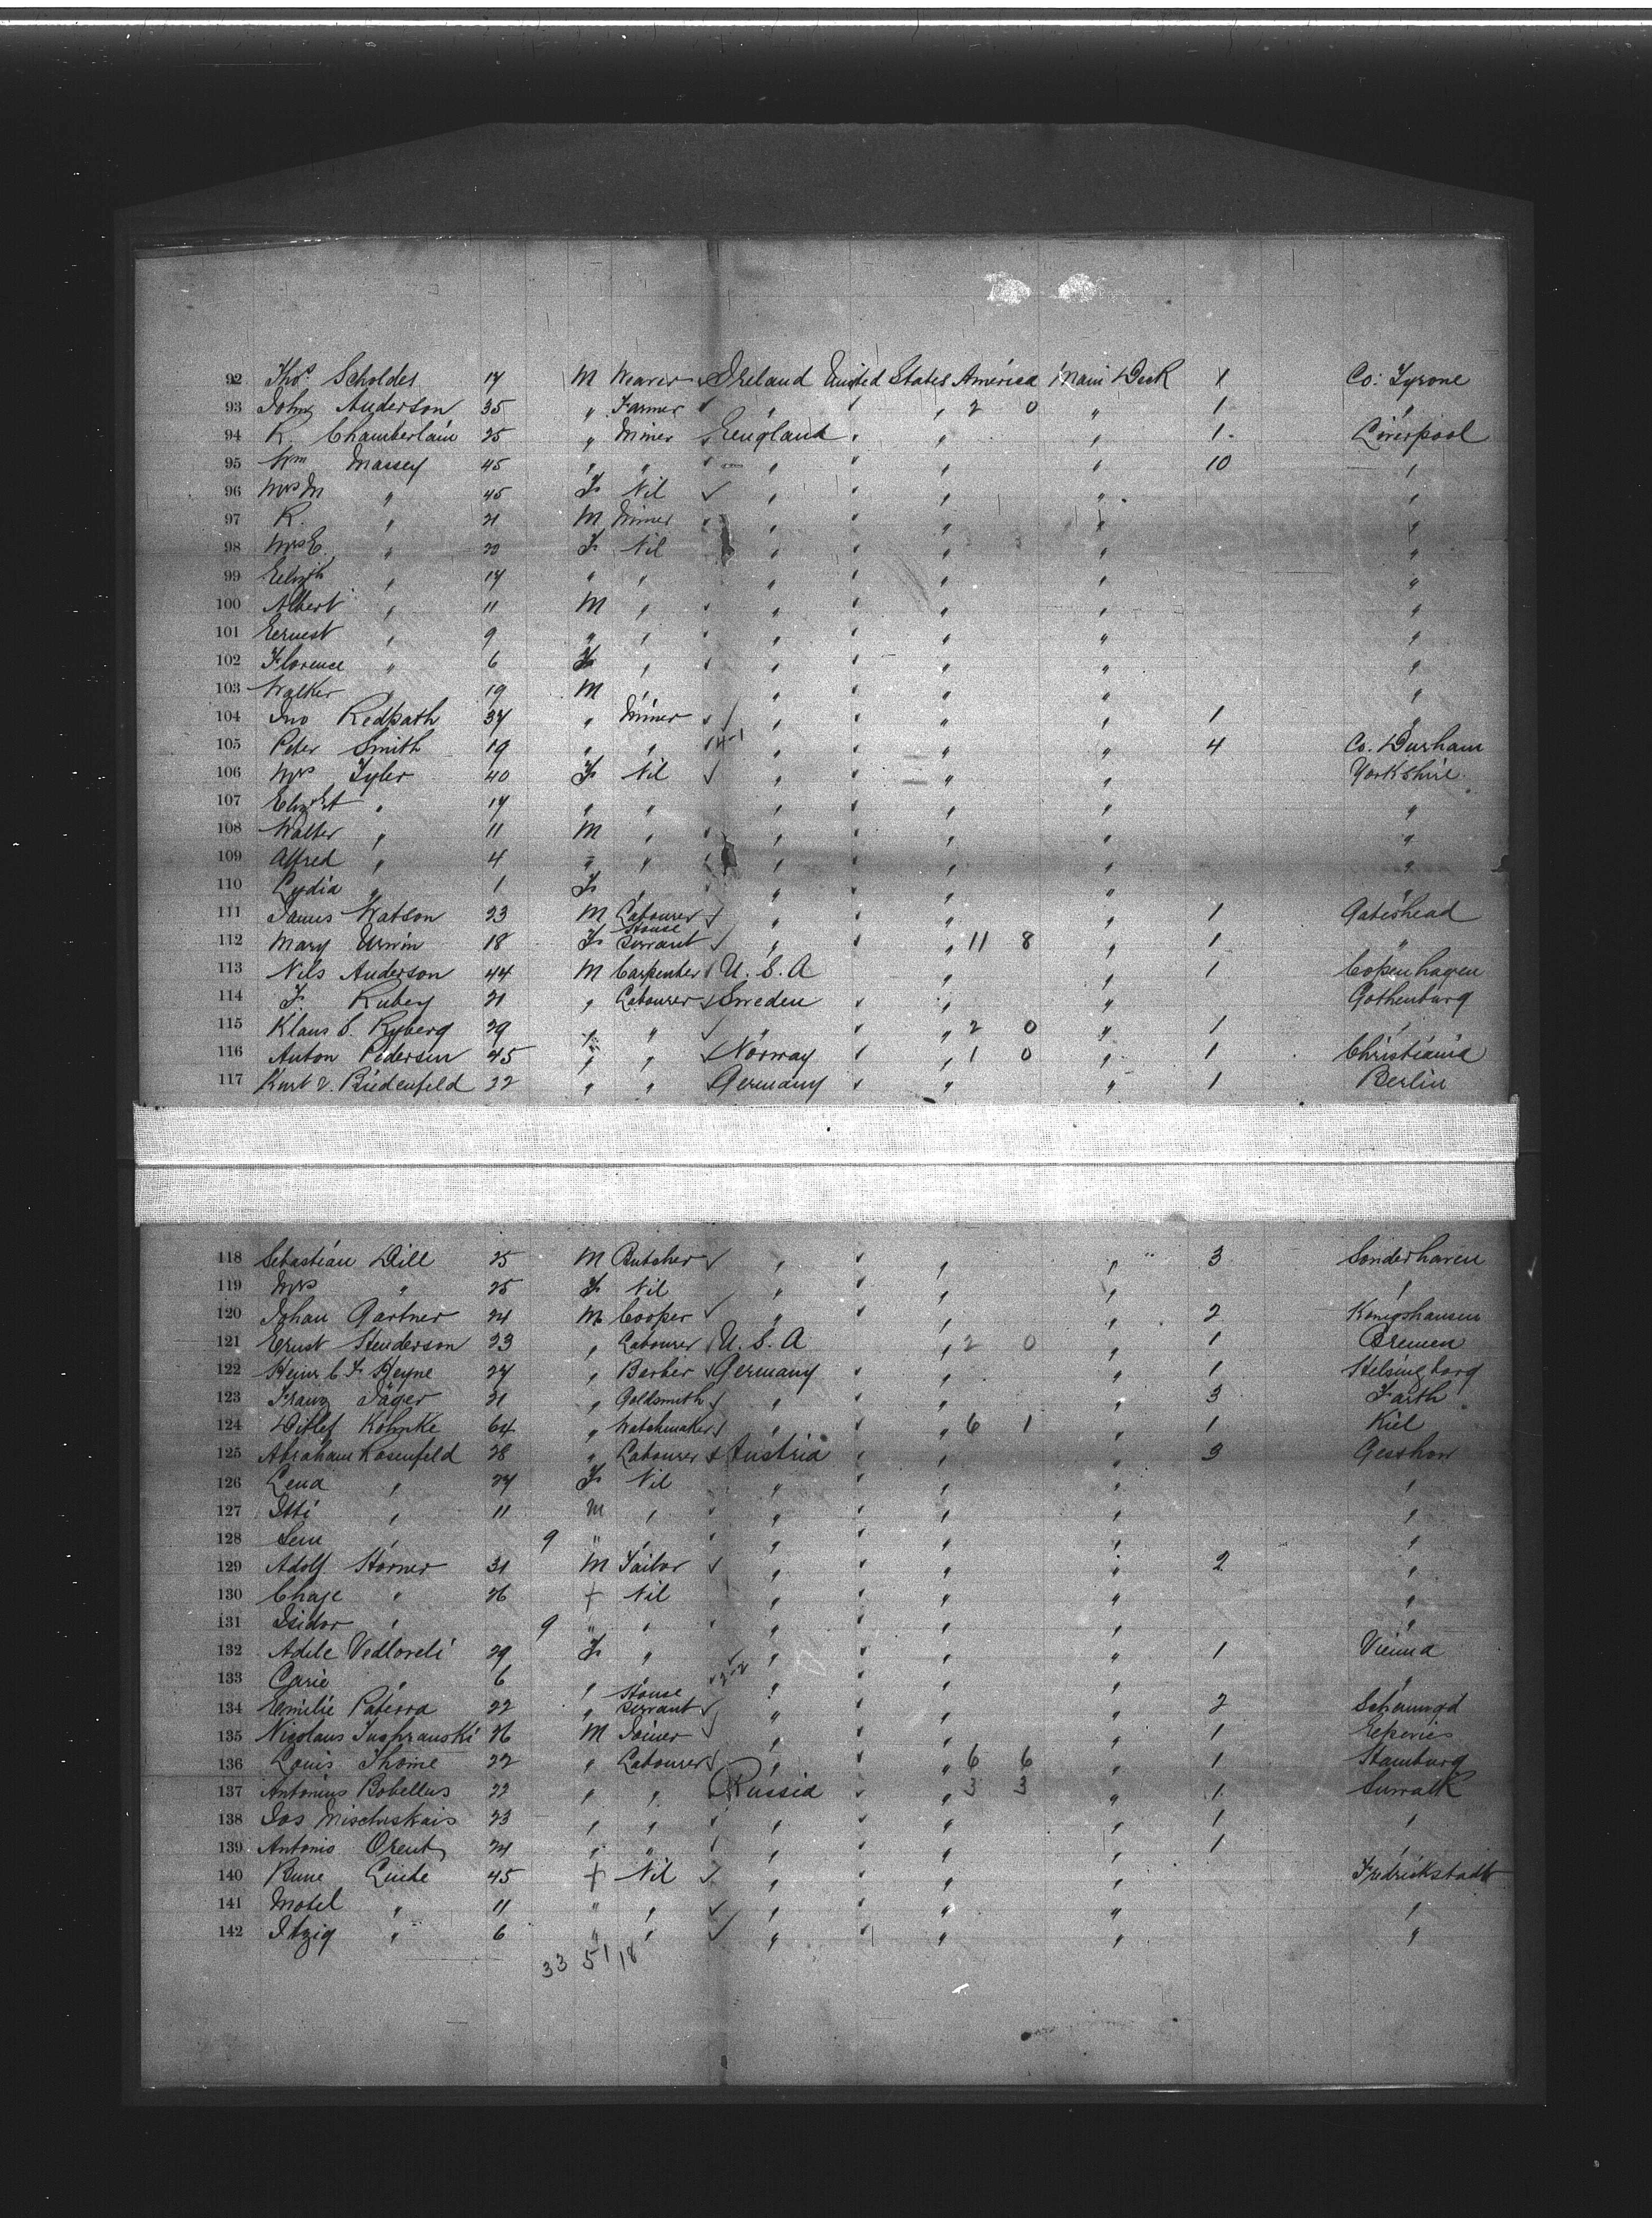 92 Thos. Scholdes 17 M Weaver Ireland United States America Main Deck 1 Co: Tyrone
93 John Anderson 35 " Farmer " " 2 0 " 1 "
94 R. Chamberlain 25 " Miner England " " " 1 Liverpool
95 Wm Massey 45 " " " " " " 10 "
96 Mrs M " 45 F Nil " " " " "
97 R. " 21 M Miner " " " " "
98 Mrs E. " 22 F Nil " " " " "
99 Elizth " 17 " " " " " " "
100 Albert " 11 M " " " " " "
101 Ernest " 9 " " " " " " "
102 Florence " 6 F " " " " " "
103 Walker " 19 M " " " " " "
104 Jno Redpath 37 " Miner " " " " 1 "
105 Peter Smith 19 " " " " " " 4 Co. Durham
106 Mrs Tyler 40 F Nil " " " " Yorkshire
107 Elizbt " 17 " " " " " " "
108 Walter " 11 M " " " " " "
109 Alfred " 4 " " " " " " "
110 Lydia " 1 F " " " " " "
111 James Watson 23 M Labourer " " " " 1 Gateshead
112 Mary Urwin 18 F House Servant " " " 11 8 " 1 "
113 Nils Anderson 44 M Carpenter U.S.A " " 1 Copenhagen
114 F Rubey 21 " Labourer Sweden " " " Gothenburg
115 Klaus S. Ryberg 29 " " " " " 2 0 " 1 "
116 Anton Pedersen 45 " " Norway " " 1 0 " 1 Christiania
117 Kurt v. Biedenfeld 22 " " Germany " " " 1 Berlin
118 Sebastian Dill 25 M Butcher " " " " 3 Sonderhaven
119 Mrs " 25 F Nil " " " " "
120 Johan Gartner 24 M Cooper " " " " 2 Konigshausen
121 Ernst Henderson 23 " Labourer U.S.A " 2 0 " 1 Bremen
122 Heinr C F Heyne 27 " Barber Germany " " " 1 Helsingborg
123 Franz Jäger 21 " Goldsmith " " " " 3 Farth
124 Ditlef Kohnke 64 " Watchmaker " " " 6 1 " 1 Kiel
125 Abraham Rosenfeld 28 " Labourer Austria " " " 3 Gesshow
126 Lena " 27 F Nil " " " " "
127 Itti " 11 M " " " " " "
128 Sem " 9 " " " " " " "
129 Adolf Horner 31 M Tailor " " " " 2 "
130 Chaje " 26 + Nil " " " " "
131 Isidor " 9 " " " " " " "
132 Adele Vedloreli 29 F " " " " " 1 Vienna
133 Carie " 6 " " " " " "
134 Emilie Paterra 22 " House Servant " " " " 2
135 Nicolaus 26 M Joiner " " " " 1 Eperies
136 Louis Thome 22 " Labourer " " " 6 6 " 1 Hamburg
137 Antonius Bobellus 22 " " Russia " " 3 3 " 1 Suwalk
138 Jos Mischuskais 23 " " " " " " 1 "
139 Antonio Orent 24 " " " " " " 1 "
140 Rune Linde 45 + Nil " " " " Fredrickstadt
141 Motel " 11 " " " " " " "
142 Itzig " 6 " " " " " " "
33 51 18